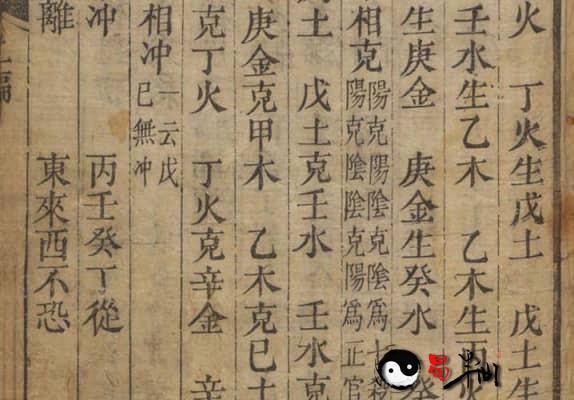 火　丁火生戊土　戊土生
壬水生乙木　乙木生丙火
生庚金　庚金生癸水　癸
相克
陽克陽陰克陰為七殺
陽克陰陰克陽為正官
土　戊土克壬水　壬水克
庚金克甲木　乙木克巳土
克丁火　丁火克辛金　辛
相冲
一云戊
巳無冲
冲　丙壬癸丁從
離　東來西不恐
易